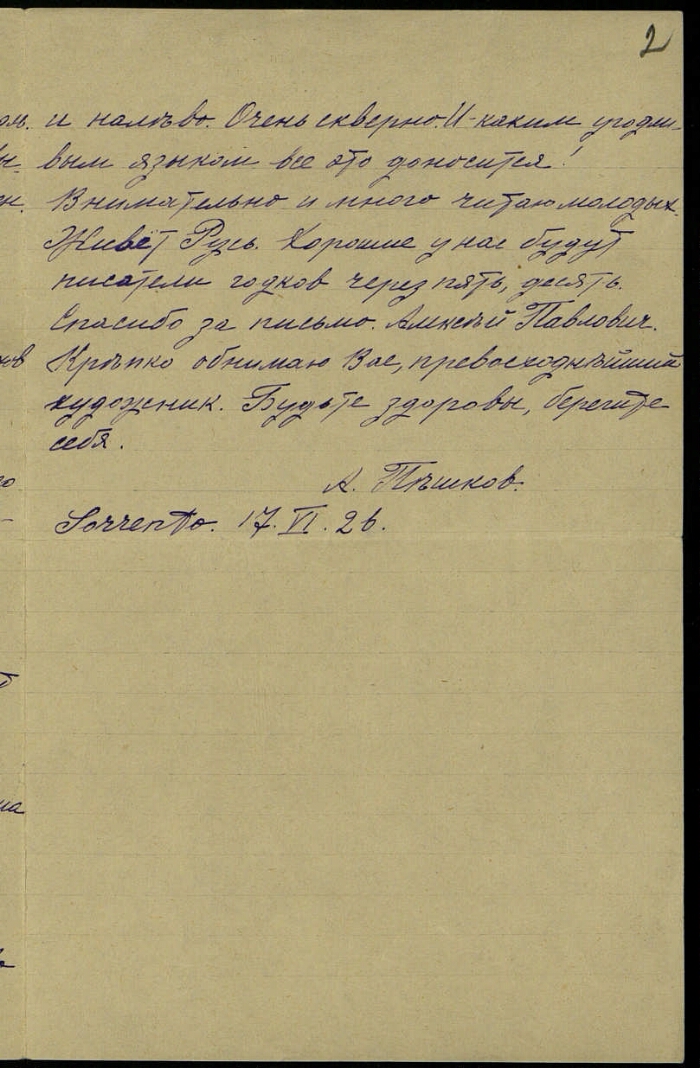 2
оль. и налѣво. Очень скверно. И каким угодли-
вым языком все это доносится!
Внимательно и много читаю молодых.
Живёт Русь. Хорошие у нас будут
писатели годков через пять, десять.
Спасибо за письмо. Алексѣй Павлович.
Крѣпко обнимаю Вас, превосходнѣйший
художник. Будьте здоровы, берегите
себя.
А. Пѣшков.
Sorrento. 17. VI. 26.